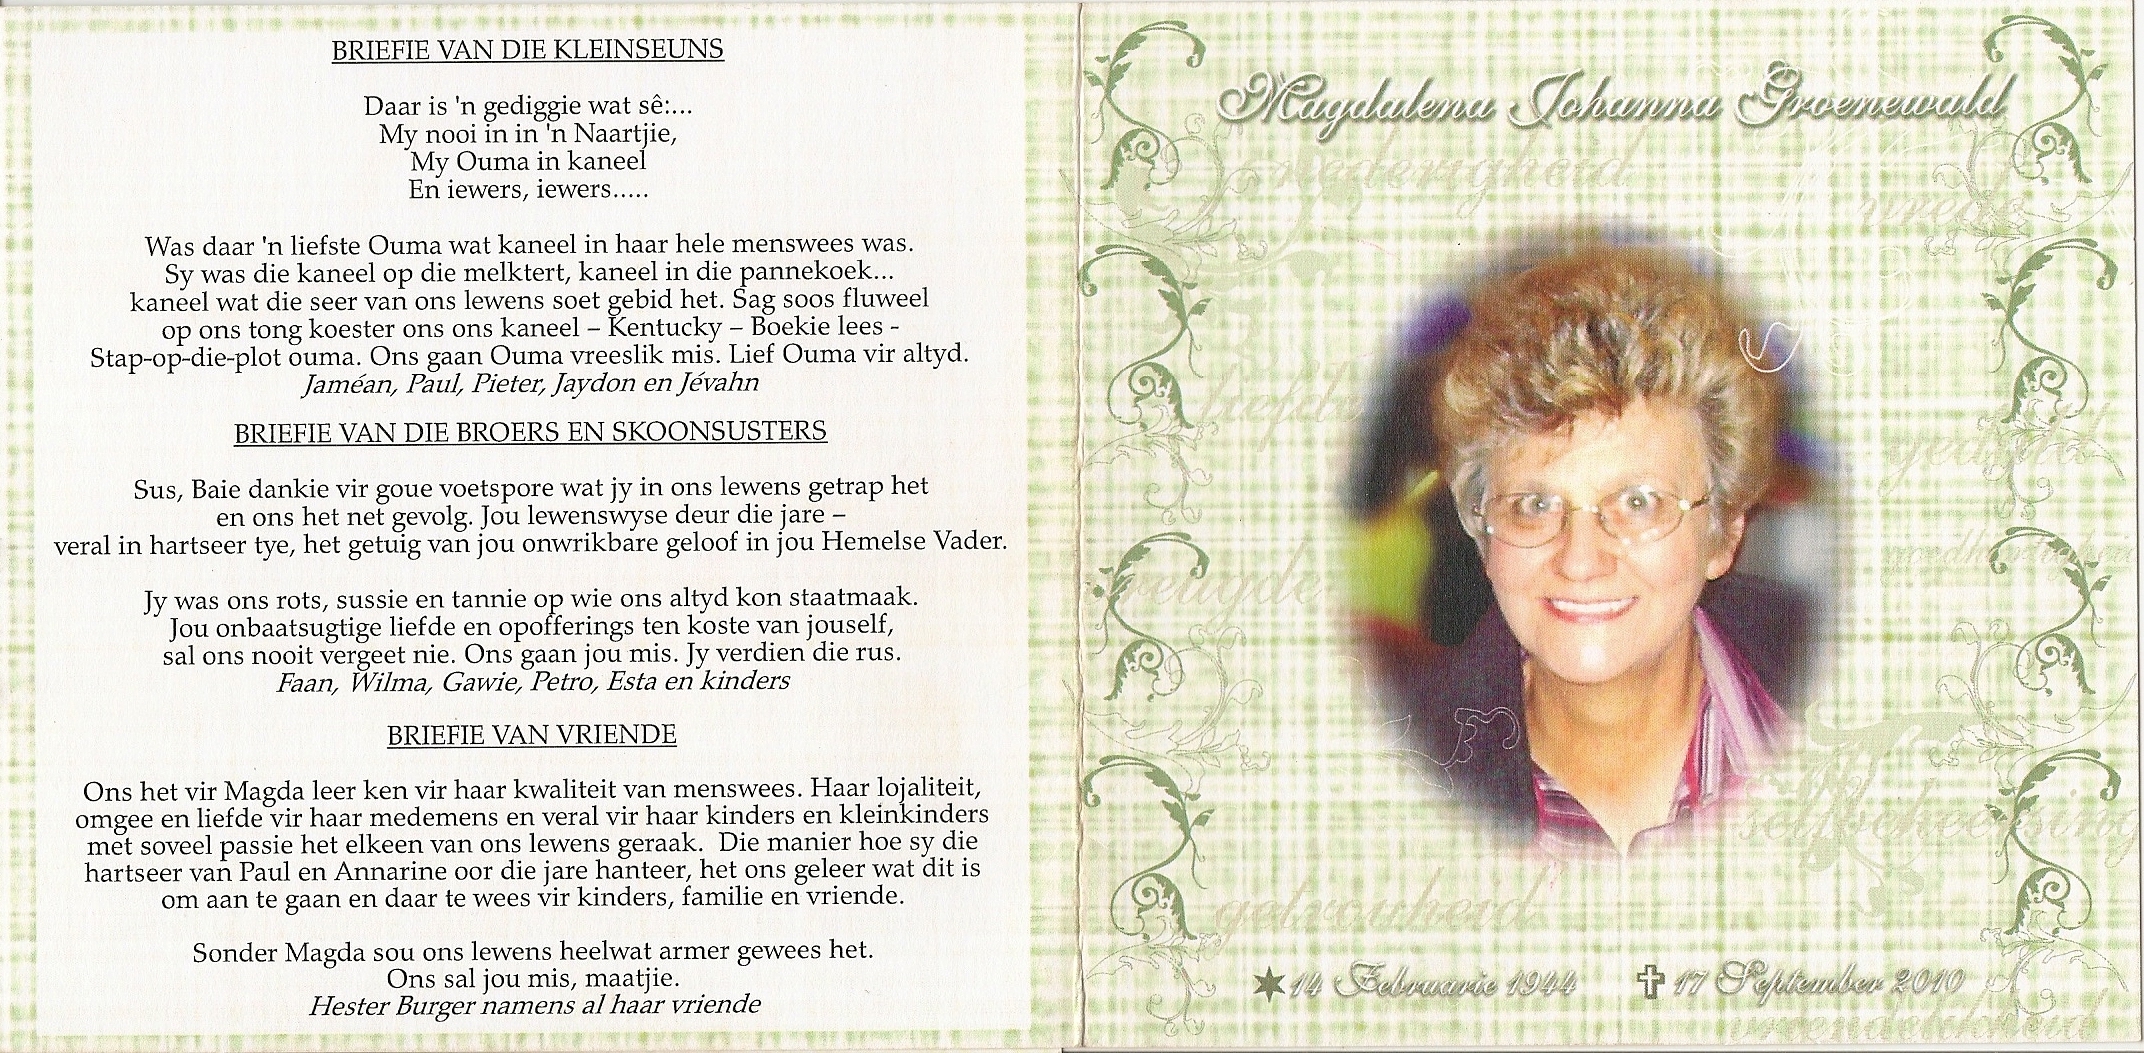 BRIEFIE VAN DIE KLEINSEUNS
Daar is 'n gediggie wat sê:...
My nooi in in 'n Naartjie,
My Ouma in kaneel
En iewers, iewers.....
Was daar 'n liefste Ouma wat kaneel in haar hele menswees was.
Sy was die kaneel op die melktert, kaneel in die pannekoek...
kaneel wat die seer van ons lewens soet gebid het. Sag soos fluweel
op ons tong koester ons ons kaneel – Kentucky – Boekie lees -
Stap-op-die-plot ouma. Ons gaan Ouma vreeslik mis. Lief Ouma vir altyd.
Jaméan, Paul, Pieter, Jaydon en Jévahn
BRIEFIE VAN DIE BROERS EN SKOONSUSTERS
Sus, Baie dankie vir goue voetspore wat jy in ons lewens getrap het
en ons het net gevolg. Jou lewenswyse deur die jare –
veral in hartseer tye, het getuig van jou onwrikbare geloof in jou Hemelse Vader.
Jy was ons rots, sussie en tannie op wie ons altyd kon staatmaak.
Jou onbaatsugtige liefde en opofferings ten koste van jouself,
sal ons nooit vergeet nie. Ons gaan jou mis. Jy verdien die rus.
Faan, Wilma, Gawie, Petro, Esta en kinders
BRIEFIE VAN VRIENDE
Ons het vir Magda leer ken vir haar kwaliteit van menswees. Haar lojaliteit,
omgee en liefde vir haar medemens en veral vir haar kinders en kleinkinders
met soveel passie het elkeen van ons lewens geraak.  Die manier hoe sy die
hartseer van Paul en Annarine oor die jare hanteer, het ons geleer wat dit is
om aan te gaan en daar te wees vir kinders, familie en vriende.
Sonder Magda sou ons lewens heelwat armer gewees het.
Ons sal jou mis, maatjie.
Hester Burger namens al haar vriende
Magdalena Johanna Groenewald
vrede
liefde
geduld
vreugde
selfbeheersing
getrouheid
14 Februarie 1944
17 September 2010
vriendelikheid